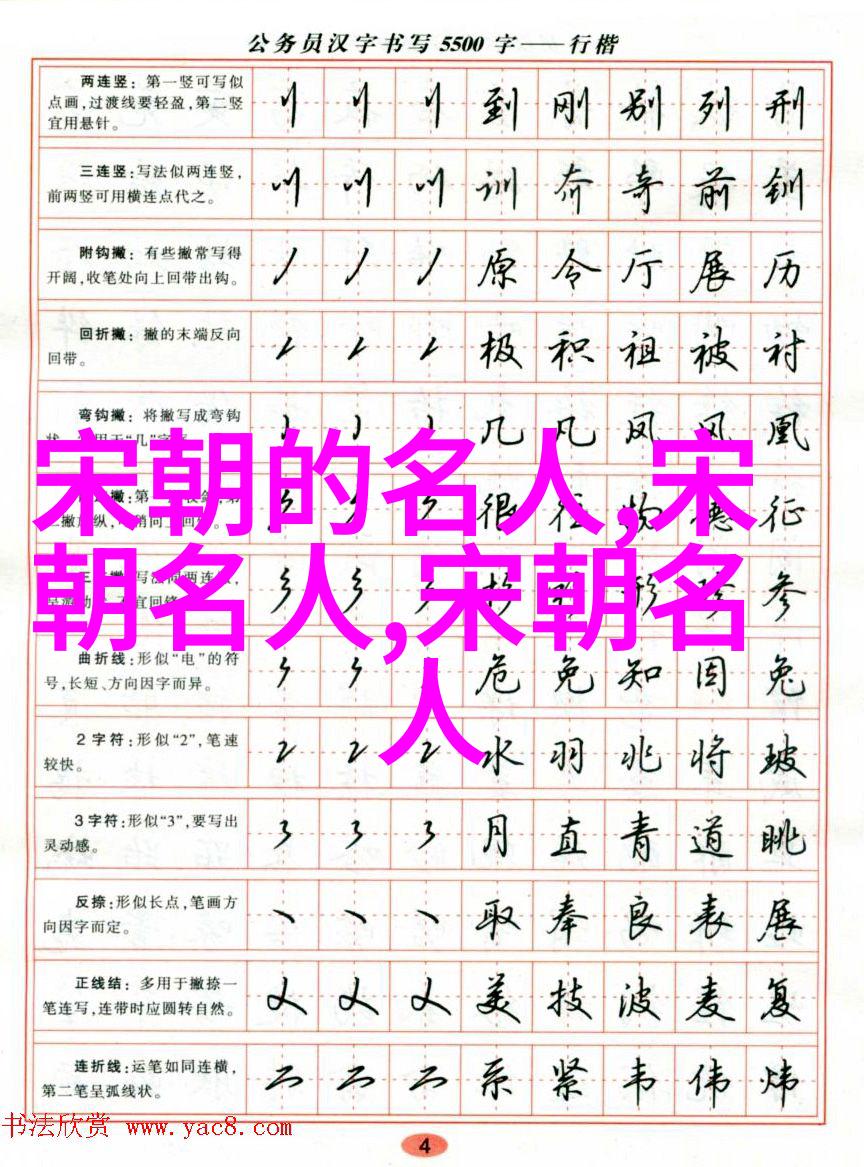 公务员汉字书写5500字——行楷
两连竖：第一竖可写似
点画,过渡线要轻盈,第二竖
宜用悬针。
到 刚 别 列 刑
三连竖:写法似两连竖，
前两竖可用横连点代之。
训 奔 奇 前 钏
附钩撇：有些撇常写得
开阔,收笔处向上回带出钩。
原 令 厅 展 历
回折撇：撇的末端反向
回带。
极 积 祖 被 衬
弯钩撇：将撇写成弯钩
几 凡 凤 风 凰
很 径 物 德 征
形 珍 参
宋朝的名人,宋
朝名人,宋朝名
人
曲折线:形似“电”的符
号,长短、方向因字而异。
危 免 知 因 兔
2字符:形似“2”,笔速
较快。
2 2 2 水 羽 兆 将 玻
3字符:形似“3”,要写出
灵动感。
3 3 3 月 直 青 道 眺
反捺:形似长点,笔画方
向因字而定。
取 奉 良 表 展
正线结：多用于撇捺一
笔连写,连带时应圆转自然。
美 技 波 麦 复
连折线:运笔如同连横，
第二笔呈弧线状。
系 紧 韦 伟 炜
书法欣赏 www.yac8.com
4